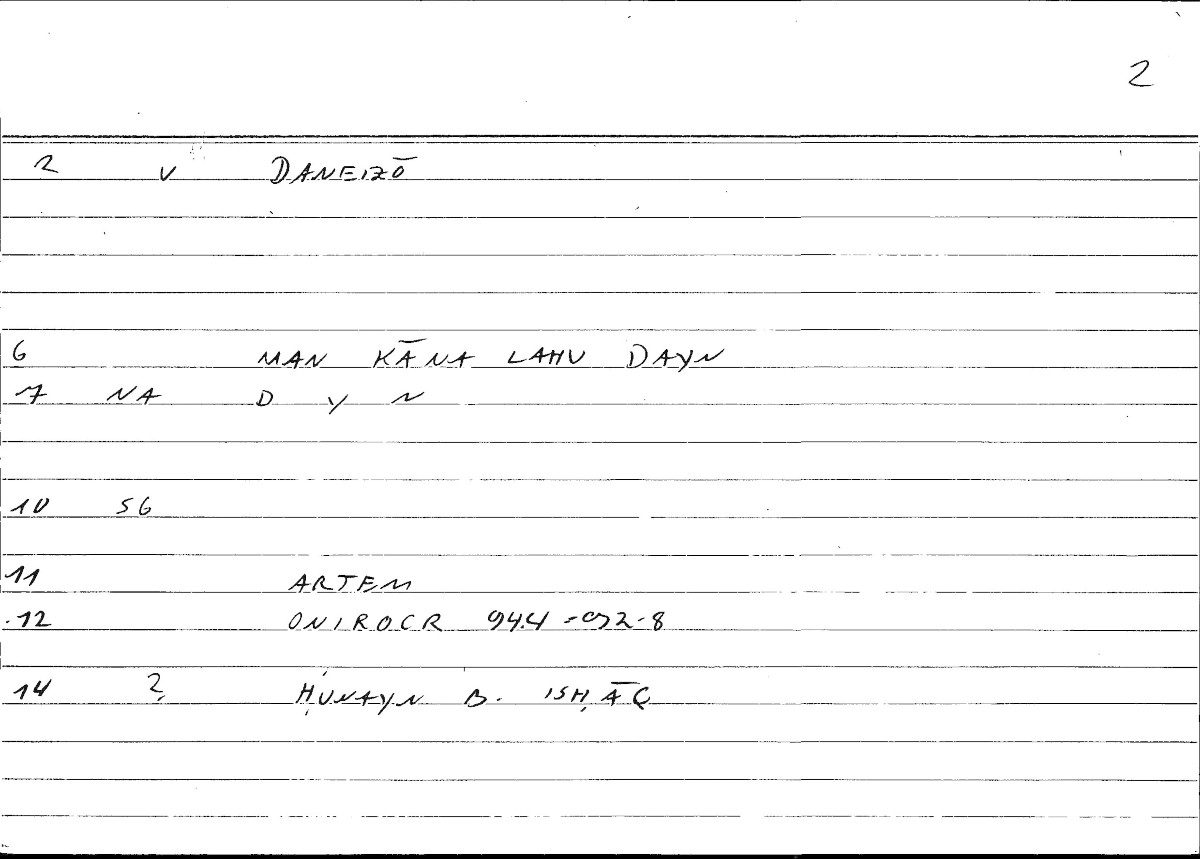 2
2 v DANEIZŌ
6 MAN KĀNA LAHU DAYN
7 NA D Y N
10 56
11 ARTEM
12 ONIROCR 94.4 - 92-8
14 2 ḤUNAYN B. ISḤĀQ